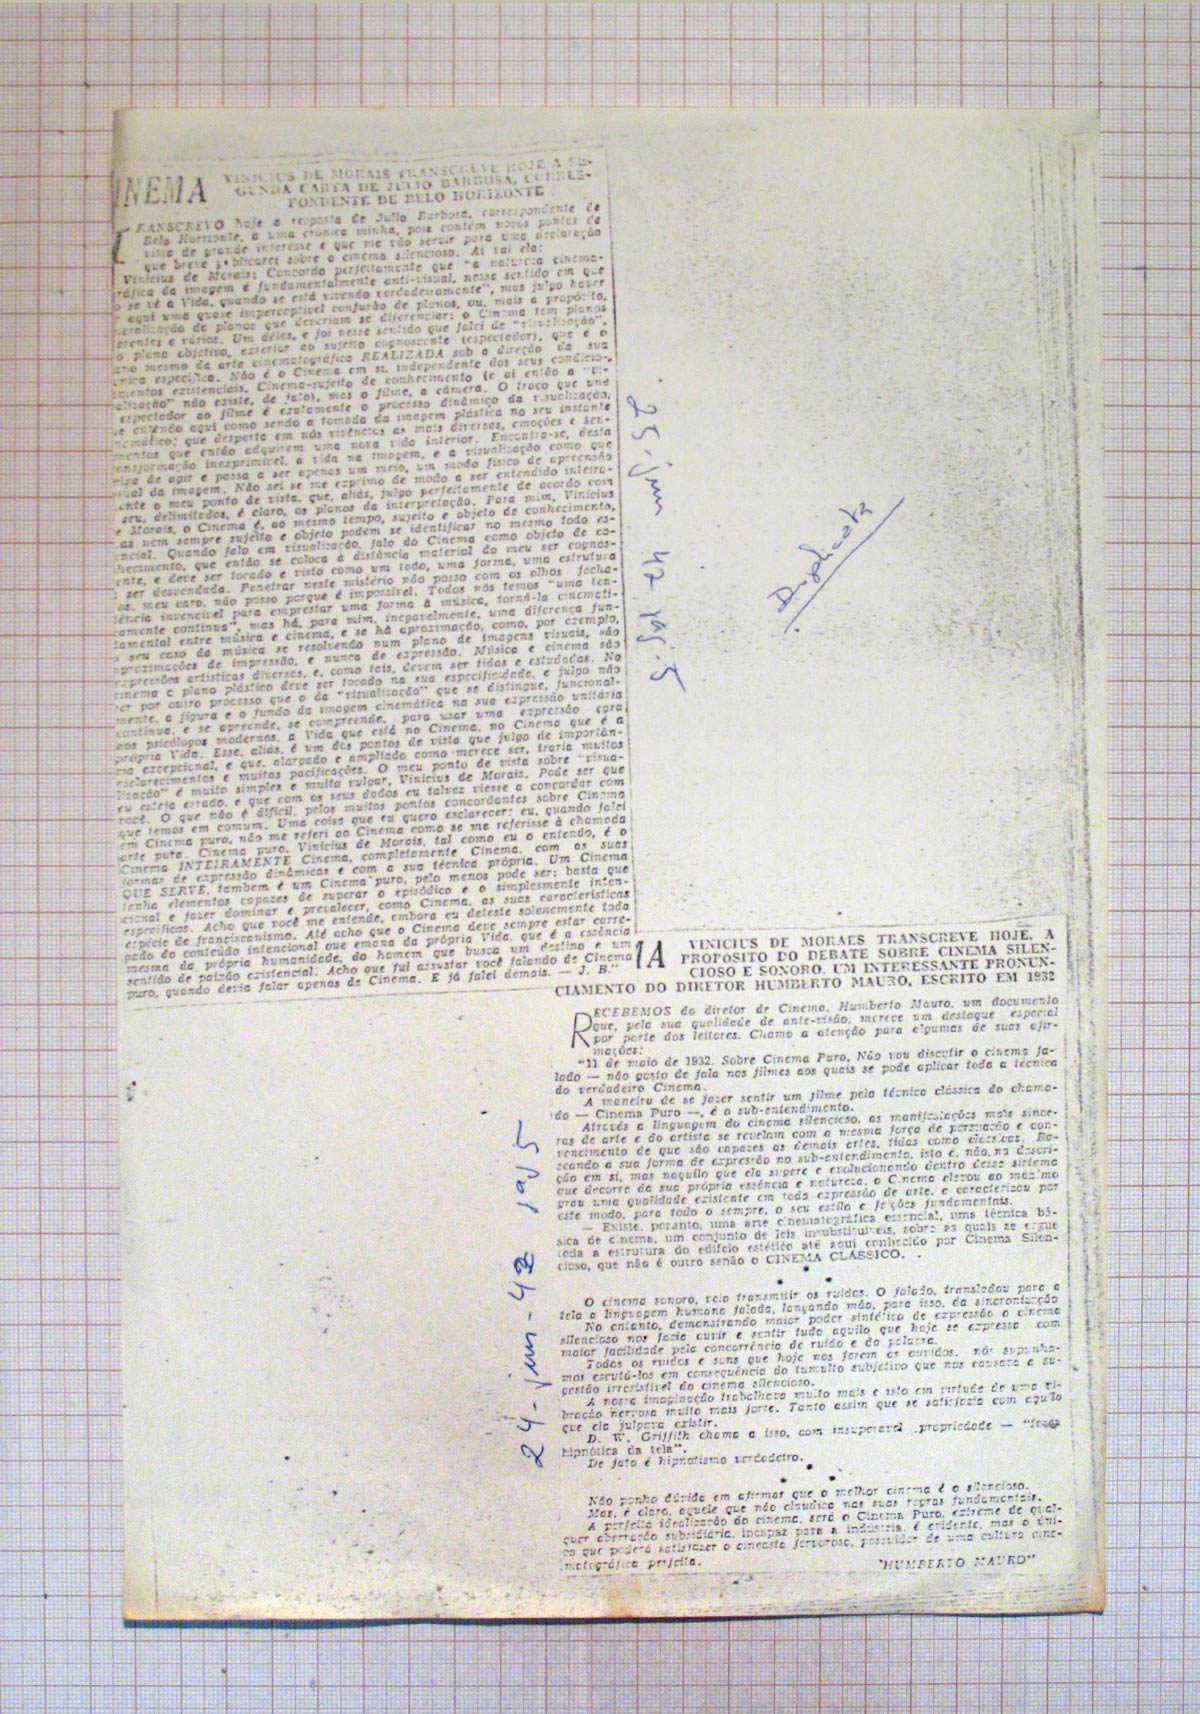 INEMA
VINICIUS DE MORAIS TRANSCREVE HOJE A SE-
GUNDA CARTA DE JULIO BARBOSA, CORRES-
PONDENTE DE BELO HORIZONTE
TRANSCREVO hoje a resposta de Julio Barbosa, correspondente de
Belo Horizonte, a uma crônica minha, pois contém novos pontos de
vista de grande interesse e que me vão servir para uma declaração
que breve publicarei sobre o cinema silencioso. Aí vai ela:
Vinicius de Morais: Concordo perfeitamente que "a natureza cinema-
gráfica da imagem é fundamentalmente anti-visual, nesse sentido em que
o se vê a Vida, quando se está vivendo verdadeiramente", mas julgo haver
aqui uma quase imperceptível confusão de planos, ou, mais a propósito,
eralização de planos que deveriam se diferenciar: o Cinema tem planos
erentes e vários. Um deles, e foi nesse sentido que falei de "visualização",
o plano objetivo, exterior ao sujeito cognoscente (espectador), que é o
ano mesmo da arte cinematográfica REALIZADA sob a direção da sua
cnica específica. Não é o Cinema em si, independente dos seus condicio-
mentos existenciais, Cinema-sujeito de conhecimento (e aí então a "vi-
alização" não existe, de fato), mas o filme, a câmera. O traço que une
espectador ao filme é exatamente o processo dinâmico da visualização,
e entendo aqui como sendo a tomada da imagem plástica no seu instante
nemático; que desperta em nós vivências as mais diversas, emoções e sen-
mentos que então adquirem uma nova vida interior. Encontra-se, desta
ansformação inexprimível, a vida na imagem, e a visualização como que
eixa de agir e passa a ser apenas um meio, um modo físico de apreensão
sual da imagem. Não sei se me exprimo de modo a ser entendido inteira-
ente o meu ponto de vista, que, aliás, julgo perfeitamente de acordo com
seu, delimitados, é claro, os planos da interpretação. Para mim, Vinicius
e Morais, o Cinema é, ao mesmo tempo, sujeito e objeto de conhecimento,
as nem sempre sujeito e objeto podem se identificar no mesmo todo es-
encial. Quando falo em visualização, falo do Cinema como objeto de co-
hecimento, que então se coloca à distância material do meu ser cognos-
ente, e deve ser tocado e visto como um todo, uma forma, uma estrutura
ser desvendada. Penetrar neste mistério não posso com os olhos fecha-
os, meu caro, não posso porque é impossível. Todos nós temos "uma ten-
ência invencível para emprestar uma forma à música, torná-la cinemati-
camente contínua", mas há, para mim, inegavelmente, uma diferença fun-
amental entre música e cinema, e se há aproximação, como, por exemplo,
seu caso da música se resolvendo num plano de imagens visuais, são
proximações de impressão, e nunca de expressão. Música e cinema são
xpressões artísticas diversas, e, como tais, devem ser tidas e estudadas. No
cinema o plano plástico deve ser tocado na sua especificidade, e julgo não
er por outro processo que o da "visualização" que se distingue, funcional-
mente, a figura e o fundo da imagem cinemática na sua expressão unitária
contínua, e se apreende, se compreende, para usar uma expressão cara
aos psicólogos modernos, a Vida que está no Cinema, no Cinema que é a
própria Vida. Esse, aliás, é um dos pontos de vista que julgo de importân-
cia excepcional, e que, alargado e ampliado como merece ser, traria muitos
esclarecimentos e muitas pacificações. O meu ponto de vista sobre "visua-
lização" é muito simples e muito vulgar, Vinicius de Morais. Pode ser que
eu esteja errado, e que com os seus dados eu talvez viesse a concordar com
você. O que não é difícil, pelos muitos pontos concordantes sobre Cinema
que temos em comum. Uma coisa que eu quero esclarecer: eu, quando falei
em Cinema puro, não me referi ao Cinema como se me referisse à chamada
arte pura. Cinema puro, Vinicius de Morais, tal como eu o entendo, é o
Cinema INTEIRAMENTE Cinema, completamente Cinema, com as suas
formas de expressão dinâmicas e com a sua técnica própria. Um Cinema
QUE SERVE, tambem é um Cinema puro, pelo menos pode ser: basta que
tenha elementos capazes de superar o episódico e o simplesmente inten-
cional e fazer dominar e prevalecer, como Cinema, as suas características
específicas. Acho que você me entende, embora eu deteste solenemente toda
espécie de franciscanismo. Até acho que o Cinema deve sempre estar carre-
gado do conteúdo intencional que emana da própria Vida, que é a essência
mesma da própria humanidade, do homem que busca um destino e um
sentido de paixão existencial. Acho que fui assustar você falando de Cinema
puro, quando devia falar apenas de Cinema. E já falei demais. — J. B."
25-jun 42 pag. 5
Duplicata
MA
VINICIUS DE MORAES TRANSCREVE HOJE, A
PROPÓSITO DO DEBATE SOBRE CINEMA SILEN-
CIOSO E SONORO, UM INTERESSANTE PRONUN-
CIAMENTO DO DIRETOR HUMBERTO MAURO, ESCRITO EM 1932
RECEBEMOS do diretor de Cinema, Humberto Mauro, um documento
que, pela sua qualidade de ante-visão, merece um destaque especial
por parte dos leitores. Chamo a atenção para algumas de suas afir-
mações:
"11 de maio de 1932. Sobre Cinema Puro. Não vou discutir o cinema fa-
lado — não gosto de fala nos filmes aos quais se pode aplicar toda a técnica
do verdadeiro Cinema.
A maneira de se fazer sentir um filme pela técnica clássica do chama-
do — Cinema Puro —, é o sub-entendimento.
Através a linguagem do cinema silencioso, as manifestações mais since-
ras de arte e do artista se revelam com a mesma força de persuasão e con-
vencimento de que são capazes as demais artes, tidas como clássicas. Ba-
seando a sua forma de expressão no sub-entendimento, isto é, não na descri-
ção em si, mas naquilo que ela sugere e evolucionando dentro desse sistema
que decorre da sua própria essência e natureza, o Cinema elevou ao máximo
grau uma qualidade existente em toda expressão de arte, e caracterizou por
este modo, para todo o sempre, o seu estilo e feições fundamentais.
— Existe, portanto, uma arte cinematográfica essencial, uma técnica bá-
sica de cinema, um conjunto de leis insubstituiveis, sobre as quais se ergue
toda a estrutura do edifício estético até aqui conhecido por Cinema Silen-
cioso, que não é outro senão o CINEMA CLÁSSICO.
O cinema sonoro, veio transmitir os ruidos. O falado, transladou para a
tela a linguagem humana falada, lançando mão, para isso, da sincronização
No entanto, demonstrando maior poder sintético de expressão o cinema
silencioso nos fazia ouvir e sentir tudo aquilo que hoje se expressa com
maior facilidade pela concorrência do ruido e da palavra.
Todos os ruidos e sons que hoje nos ferem os ouvidos, nós supunha-
mos escutá-los em consequência do tumulto subjetivo que nos causava a su-
gestão irresistivel do cinema silencioso.
A nossa imaginação trabalhava muito mais e isto em virtude de uma vi-
bração nervosa muito mais forte. Tanto assim que se satisfazia com aquilo
que ela julgava existir.
D. W. Griffith chama a isso, com insuperavel propriedade — "força
hipnótica da tela".
De fato é hipnotismo verdadeiro.
Não ponho dúvida em afirmar que o melhor cinema é o silencioso.
Mas, é claro, aquele que não claudica nas suas regras fundamentais.
A perfeita idealização do cinema, será o Cinema Puro, extreme de qual-
quer aberração subsidiária, incapaz para a indústria, é evidente, mas o úni-
co que poderá satisfazer o cineasta fervoroso, possuidor de uma cultura cine-
matográfica perfeita.
"HUMBERTO MAURO"
24-jun-42 pag 5